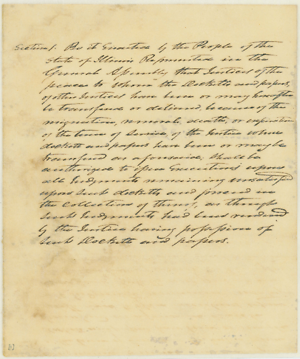 Section 1. Be it Enacted by the People of the
State of Illinois Represented in the
General Assembly that Justices of the
peace to whom the Dockets and papers
of other Justices have been or may hereafter
be transferred or delivered, because of the
resignation, removal, death, or expiration
of the term of service, of the Justice whose
dockets and papers have been or may be
transferred as aforesaid, shall be
authorized to issue executions upon
all judgments remaining unsatisfied
upon such dockets and proceed in
the collection of them, as though
such judgments had been rendered
by the Justice having possession of
such Dockets and papers.